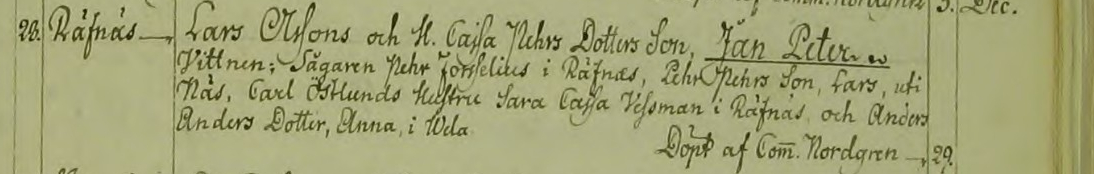 Comm. Nordgren 5. Dec.
28. Räfnäs Lars Olssons och H. Cajsa Pehrs Dotters Son, Jan Peter.
Vittnen: Sågaren Pehr Forsselius i Räfnæs, Pehr Pehrs Son, Lars, uti
Näs, Carl Östlunds Hustru Sara Cajsa Vessman i Räfnäs, och Anders
Anders Dotter, Anna, i Wela
Döpt af Com̅. Nordgren 29.